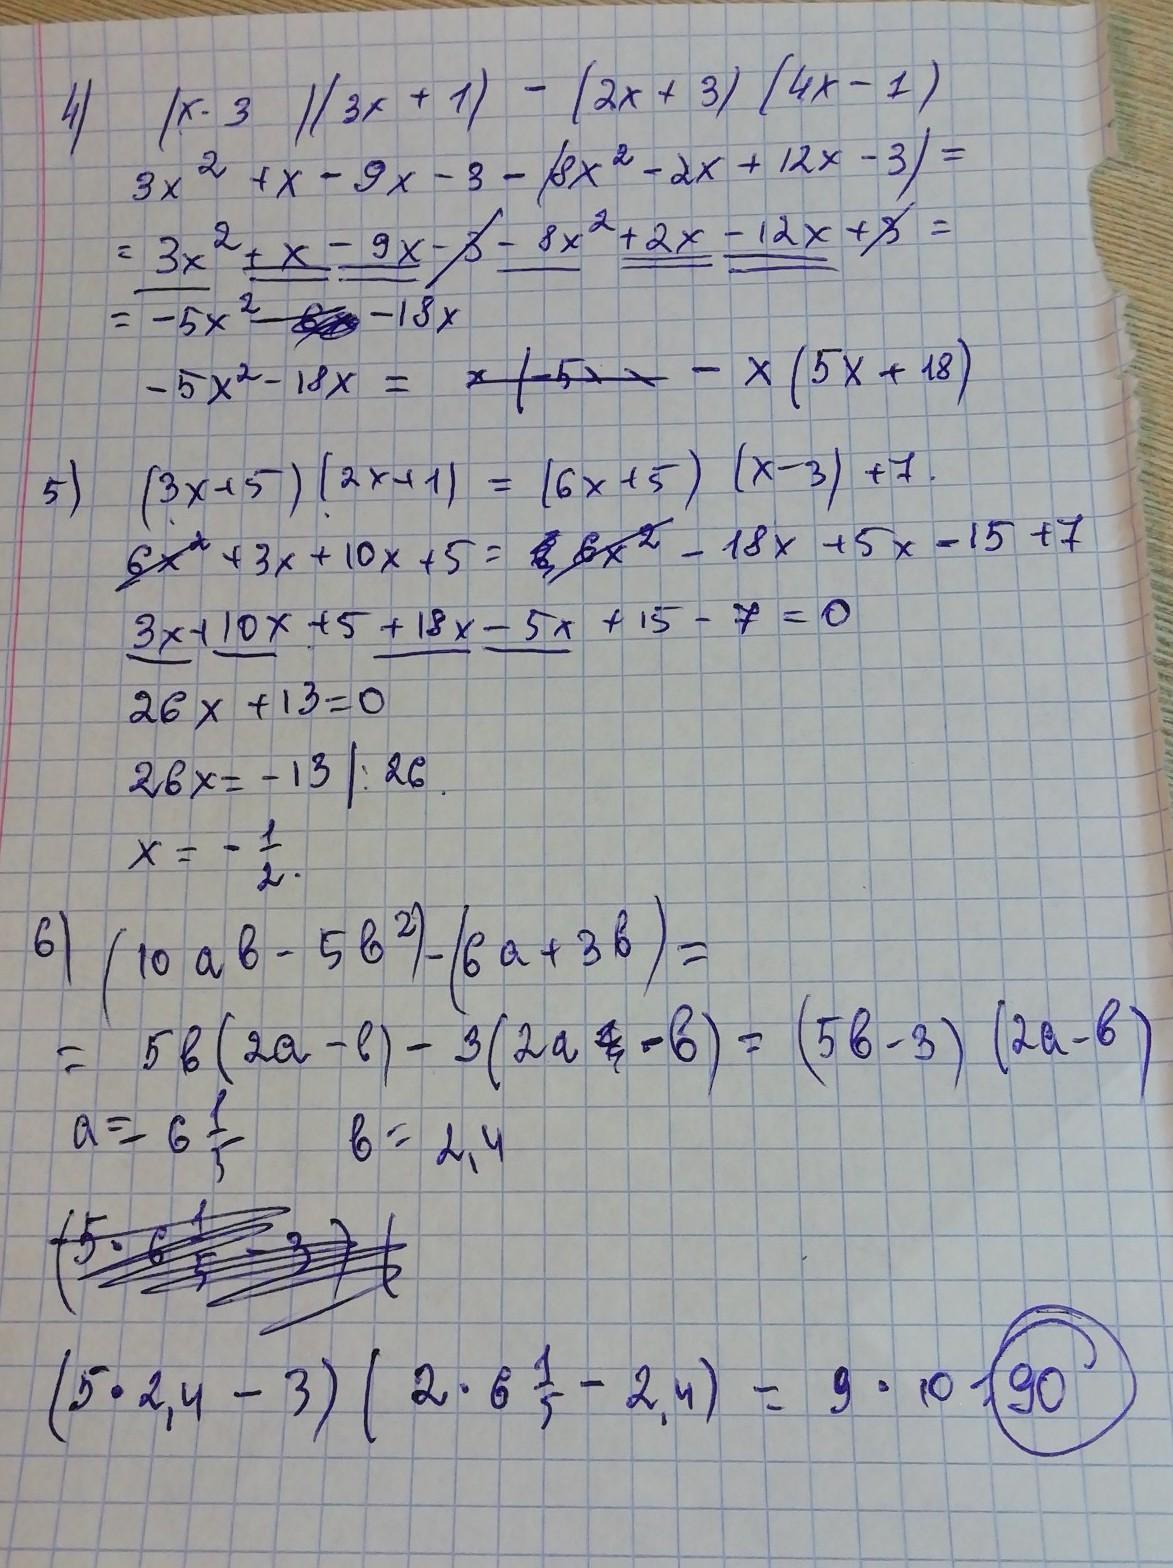 4) (x-3)(3x+1) - (2x+3)(4x-1)
3x² +x - 9x - 3 - (8x² - 2x + 12x - 3) =
= 3x² + x - 9x - 3 - 8x² + 2x - 12x + 3 =
= -5x² - 18x
-5x² - 18x = - x (5x + 18)
5) (3x+5)(2x+1) = (6x+5)(x-3) +7.
6x² +3x + 10x +5 = 6x² - 18x +5x - 15 +7
3x+10x +5 +18x - 5x +15 - 7 = 0
26x +13=0
26x = -13 |: 26.
x = - 1/2.
6) (10ab - 5b²) - (6a + 3b) =
= 5b(2a - b) - 3(2a - b) = (5b - 3)(2a - b)
a = - 6 1/5 b = 2,4
(5 · 6 1/5 - 3) (
(5 · 2,4 - 3) ( 2 · 6 1/5 - 2,4) = 9 · 10 = 90